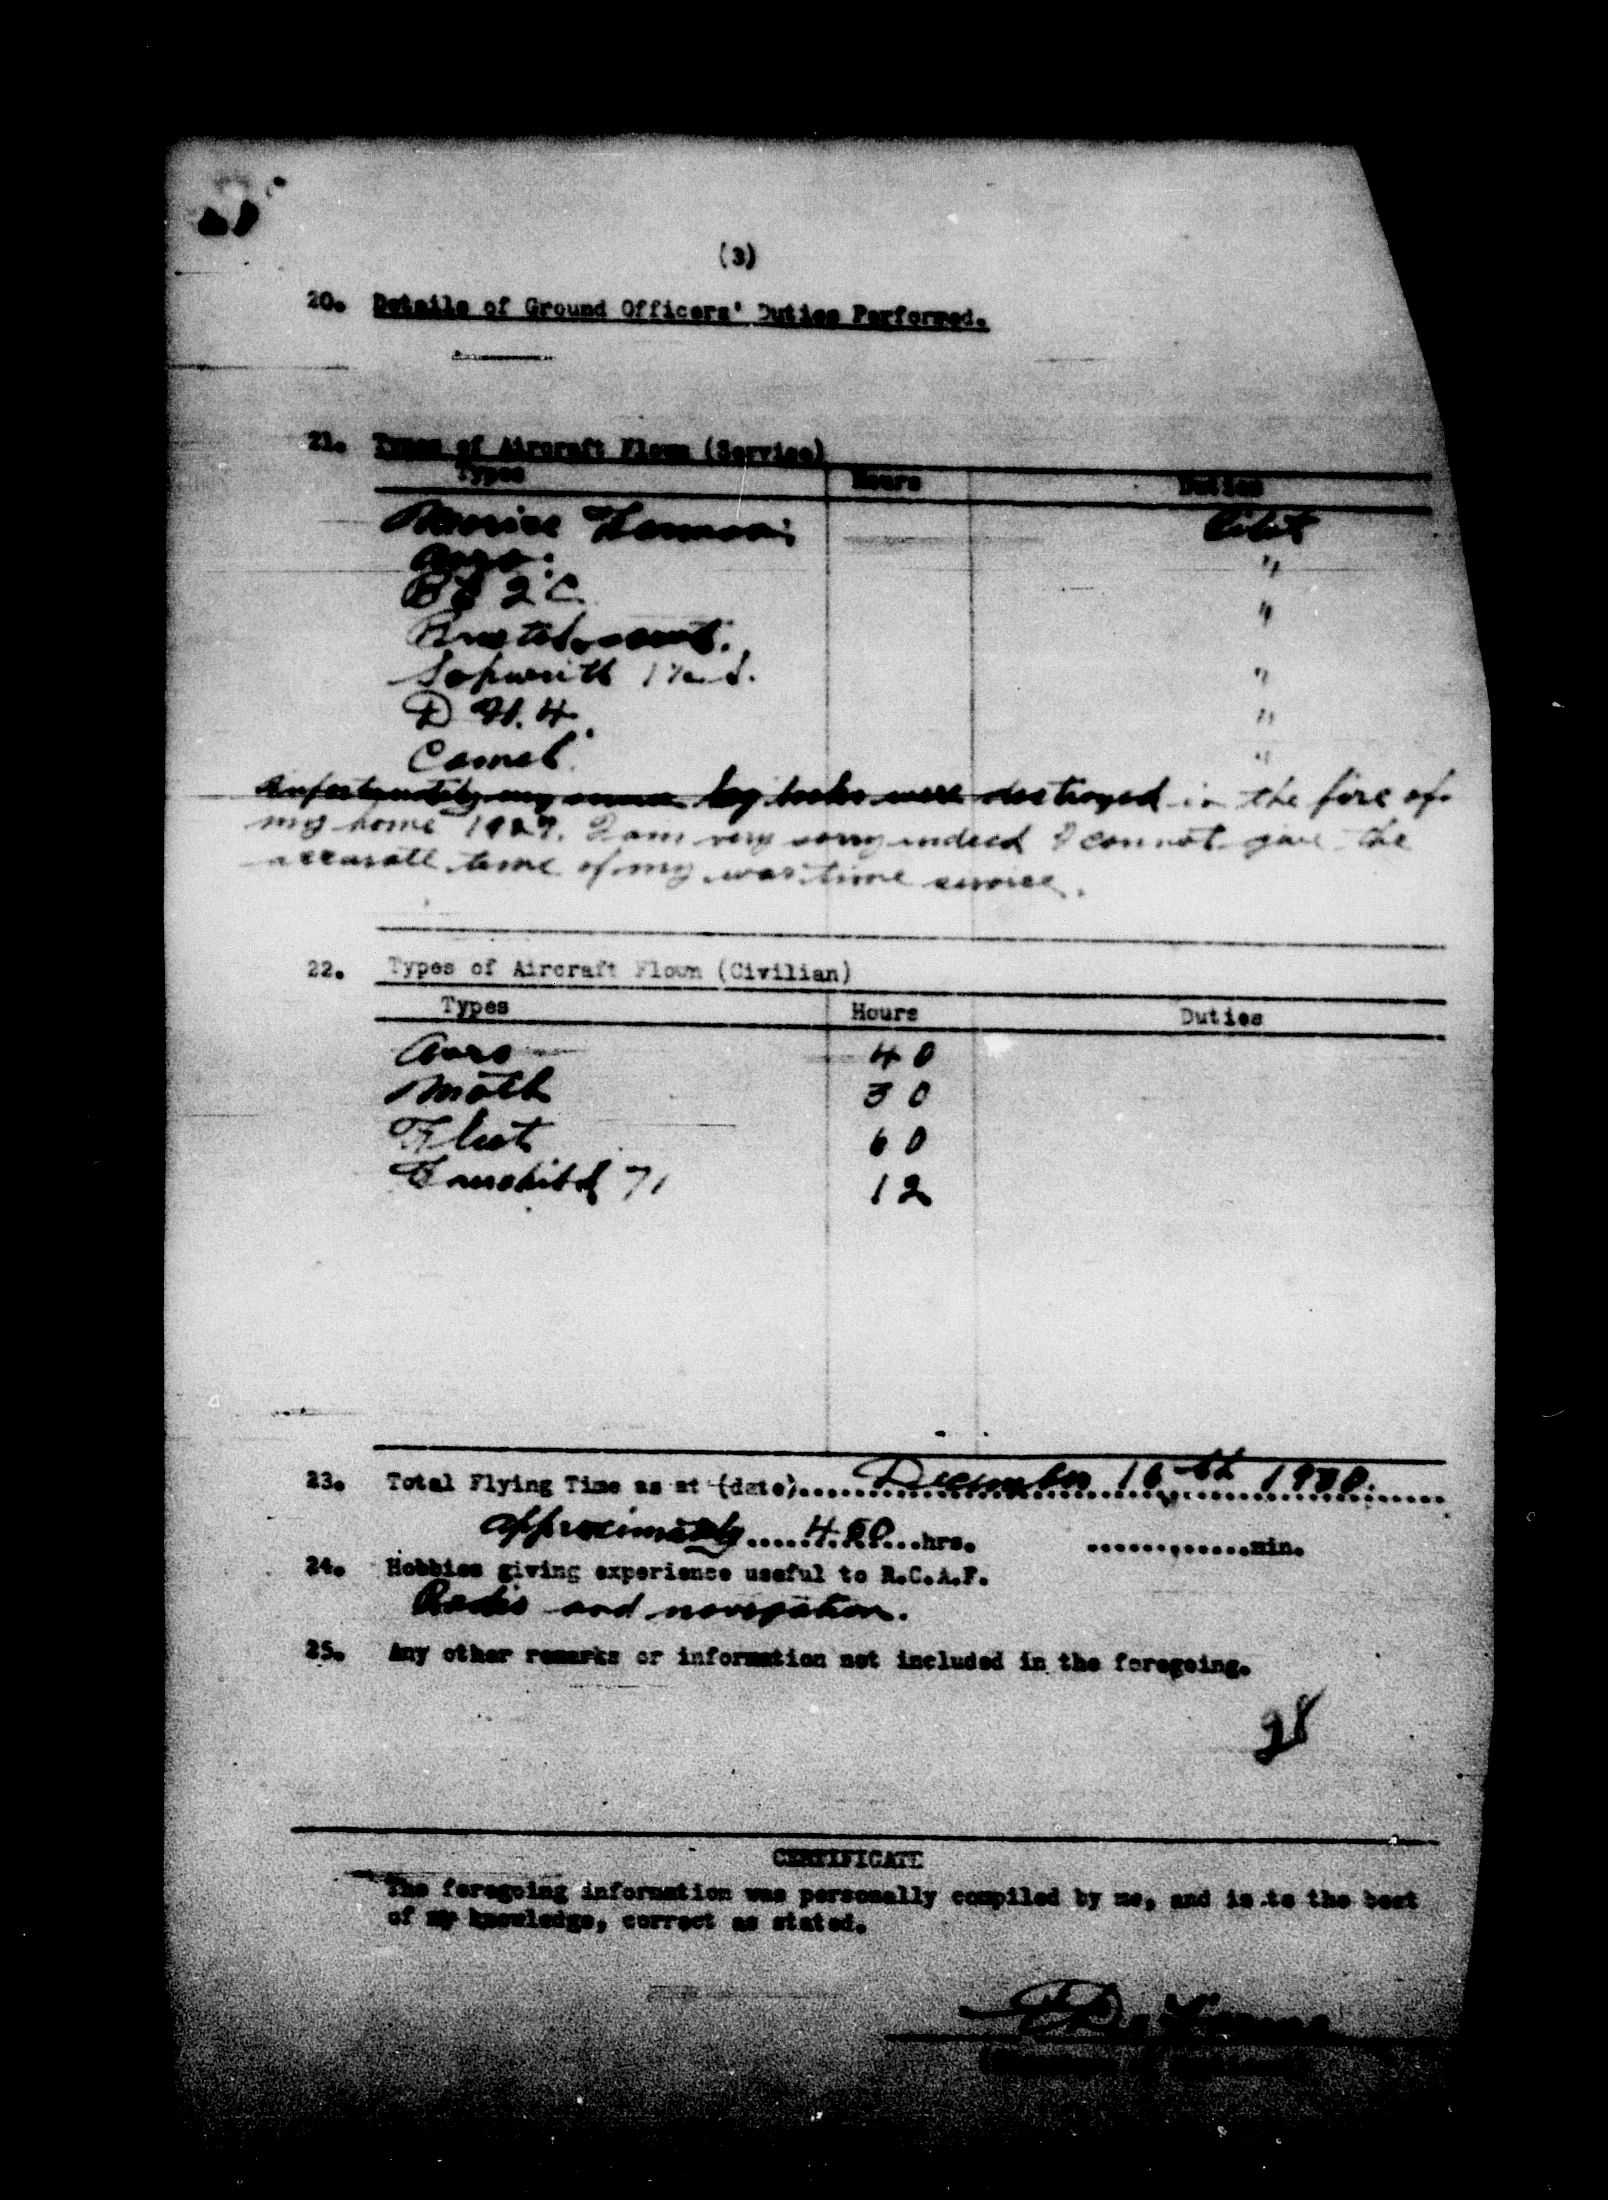 (3)
20. Details of Ground Officers' Duties Performed.
21. Types of Aircraft Flown (Service)
Types Hours Duties
Pilot
Avro: "
B E 2 C "
Bristol scout.
Sopwith 1½ S. "
D H. 4 "
Camel "
Unfortunately my log books were destroyed in the fire of
my home 1927. I am very sorry indeed I cannot give the
accurate time of my war time service.
22. Types of Aircraft Flown (Civilian)
Types Hours Duties
Avro 40
Moth 30
Fleet 60
Fairchild 71 12
23. Total Flying Time as at (date) December 16th
approximately hrs. min.
24. Hobbies giving experience useful to R.C.A.F.
Radio and navigation.
25. Any other remarks or information not included in the foregoing.
28
CERTIFICATE
The foregoing information was personally compiled by me, and is to the best
of my knowledge, correct as stated.